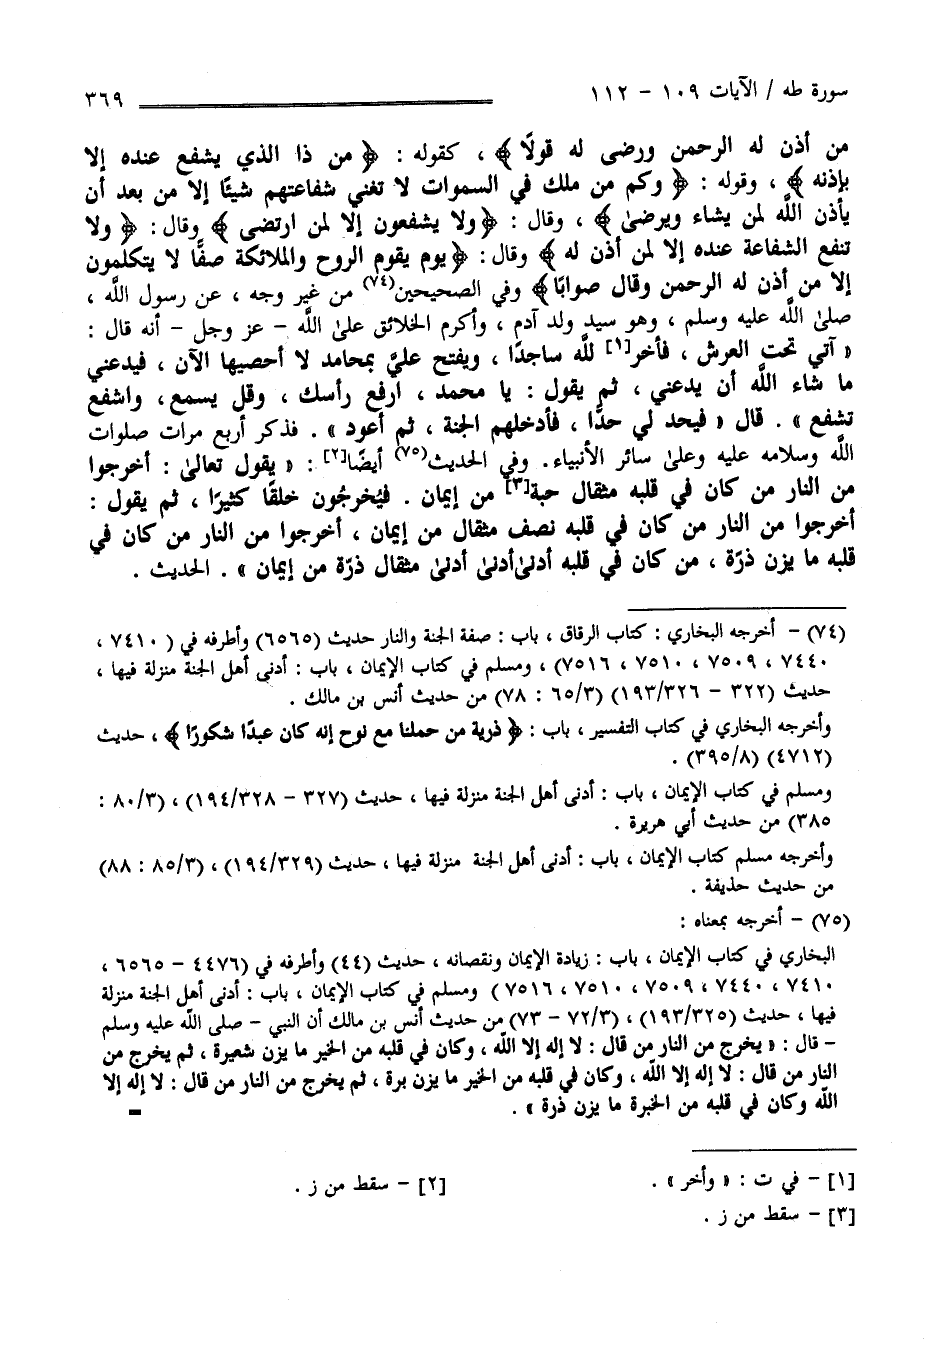 سورة طه / الآيات ١٠٩ - ١١٢ ٣٦٩
من أذن له الرحمن ورضى له قولًا ﴾ ، كقوله : ﴿ من ذا الذي يشفع عنده إلا
بإذنه ﴾ ، وقوله : ﴿ وكم من ملك في السموات لا تغني شفاعتهم شيئًا إلا من بعد أن
يأذن اللَّه لمن يشاء ويرضىٰ ﴾ ، وقال : ﴿ ولا يشفعون إلا لمن ارتضى ﴾ وقال : ﴿ ولا
تنفع الشفاعة عنده إلا لمن أذن له ﴾ وقال : ﴿ يوم يقوم الروح والملائكة صفًّا لا يتكلمون
إلا من أذن له الرحمن وقال صوابًا ﴾ وفي الصحيحين(٧٤) من غير وجه ، عن رسول اللَّه ،
صلىٰ اللَّه عليه وسلم ، وهو سيد ولد آدم ، وأكرم الخلائق علىٰ اللَّه - عز وجل - أنه قال :
« آتي تحت العرش ، فأخر[١] للَّه ساجدًا ، ويفتح عليَّ بمحامد لا أحصيها الآن ، فيدعني
ما شاء اللَّه أن يدعني ، ثم يقول : يا محمد ، ارفع رأسك ، وقل يسمع، واشفع
تشفع » . قال « فيحد لي حدًّا ، فأدخلهم الجنة ، ثم أعود » . فذكر أربع مرات صلوات
اللَّه وسلامه عليه وعلىٰ سائر الأنبياء. وفي الحديث(٧٥) أيضًا[٢] : « يقول تعالىٰ : أخرجوا
من النار من كان في قلبه مثقال حبة[٣] من إيمان . فيُخرجُون خلقًا كثيرًا ، ثم يقول :
أخرجوا من النار من كان في قلبه نصف مثقال من إيمان ، أخرجوا من النار من كان في
قلبه ما يزن ذرّة ، من كان في قلبه أدنىٰ أدنىٰ أدنىٰ مثقال ذرّة من إيمان » . الحديث .
(٧٤) - أخرجه البخاري : كتاب الرقاق ، باب : صفة الجنة والنار حديث (٦٥٦٥) وأطرفه في ( ٧٤١٠ ،
٧٤٤٠ ، ٧٥٠٩ ، ٧٥١٠ ، ٧٥١٦) ، ومسلم في كتاب الإيمان ، باب : أدنى أهل الجنة منزلة فيها ،
حديث (٣٢٢ - ١٩٣/٣٢٦) (٦٥/٣ : ٧٨) من حديث أنس بن مالك .
وأخرجه البخاري في كتاب التفسير ، باب : ﴿ ذرية من حملنا مع نوح إنه كان عبدًا شكورًا ﴾ ، حديث
(٤٧١٢) (٣٩٥/٨) .
ومسلم في كتاب الإيمان ، باب : أدنى أهل الجنة منزلة فيها ، حديث (٣٢٧ - ١٩٤/٣٢٨) ، (٨٠/٣ :
٣٨٥) من حديث أبي هريرة .
وأخرجه مسلم كتاب الإيمان ، باب : أدنى أهل الجنة منزلة فيها ، حديث (١٩٤/٣٢٩) ، (٨٥/٣ : ٨٨)
من حديث حذيفة .
(٧٥) - أخرجه بمعناه :
البخاري في كتاب الإيمان ، باب : زيادة الإيمان ونقصانه ، حديث (٤٤) وأطرفه في (٤٤٧٦ - ٦٥٦٥ ،
٧٤١٠ ، ٧٤٤٠ ، ٧٥٠٩ ، ٧٥١٠ ، ٧٥١٦) ومسلم في كتاب الإيمان ، باب : أدنى أهل الجنة منزلة
فيها ، حديث (١٩٣/٣٢٥) ، (٧٢/٣ - ٧٣) من حديث أنس بن مالك أن النبي - صلى اللّه عليه وسلم
- قال : « يخرج من النار من قال : لا إله إلا اللّه ، وكان في قلبه من الخير ما يزن شعيرة ، ثم يخرج من
النار من قال : لا إله إلا اللّه ، وكان في قلبه من الخير ما يزن برة ، ثم يخرج من النار من قال : لا إله إلا
اللّه وكان في قلبه من الخبرة ما يزن ذرة » .
[١] - في ت : « وأخر » . [٢] - سقط من ز .
[٣] - سقط من ز .